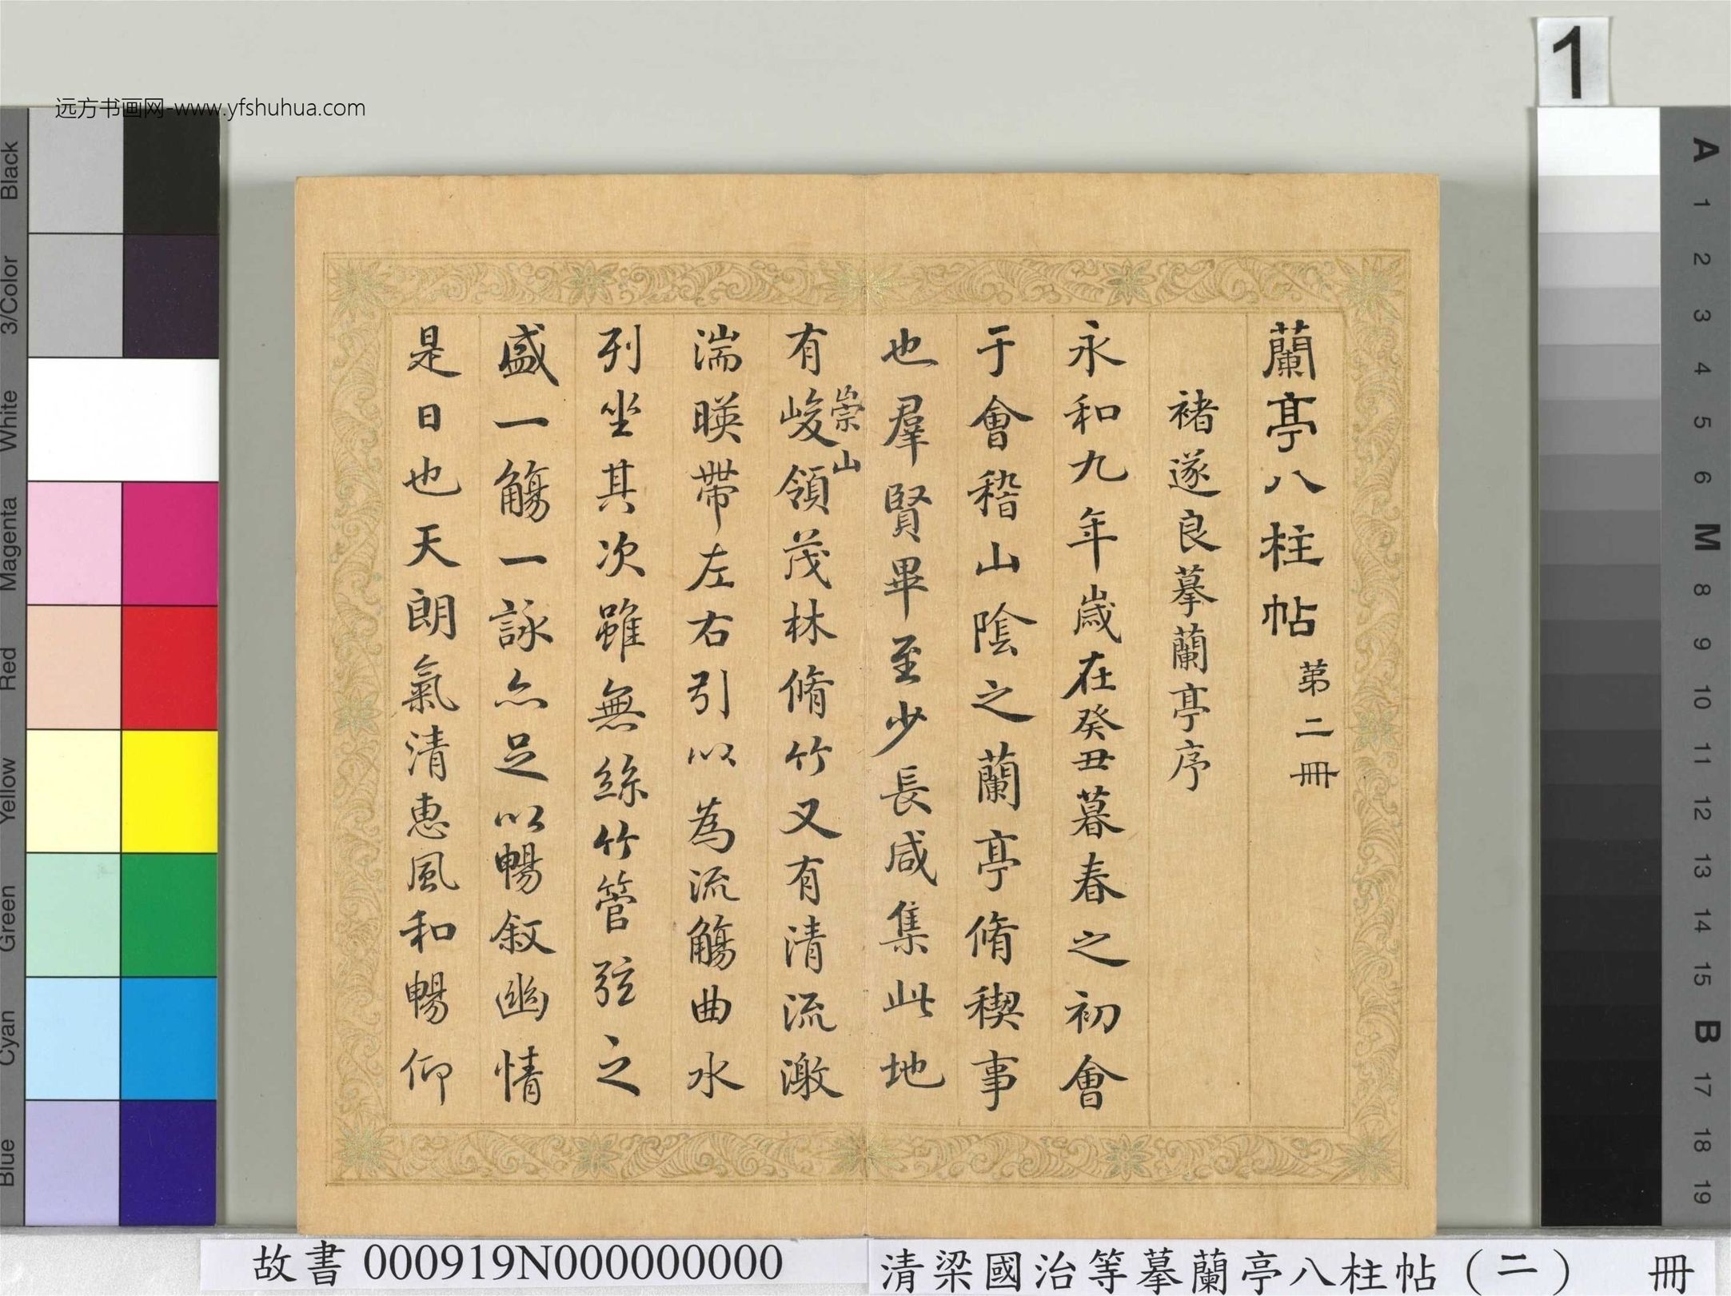 远方书画网-www.yfshuhua.com
1
蘭亭八柱帖 第二冊
褚遂良摹蘭亭序
永和九年歲在癸丑暮春之初會
于會稽山陰之蘭亭脩稧事
也羣賢畢至少長咸集此地
有崇山峻領茂林脩竹又有清流激
湍暎帶左右引以為流觴曲水
列坐其次雖無絲竹管弦之
盛一觴一詠亦足以暢敘幽情
是日也天朗氣清惠風和暢仰
Black
3/Color
White
Magenta
Red
Yellow
Green
Cyan
Blue
A
1
2
3
4
5
6
M
8
9
10
11
12
13
14
15
B
17
18
19
故書 000919N000000000
清梁國治等摹蘭亭八柱帖（二） 冊